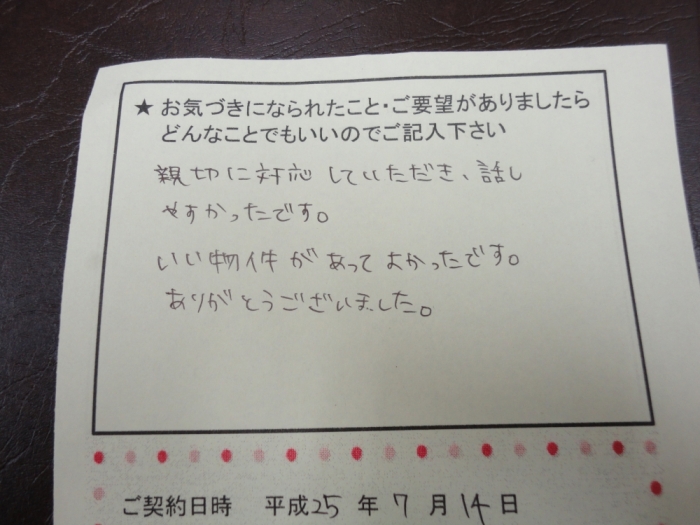 ★ お気づきになられたこと・ご要望がありましたら
どんなことでもいいのでご記入下さい
親切に対応していただき、話し
やすかったです。
いい物件があってよかったです。
ありがとうございました。
ご契約日時 平成25年7月14日